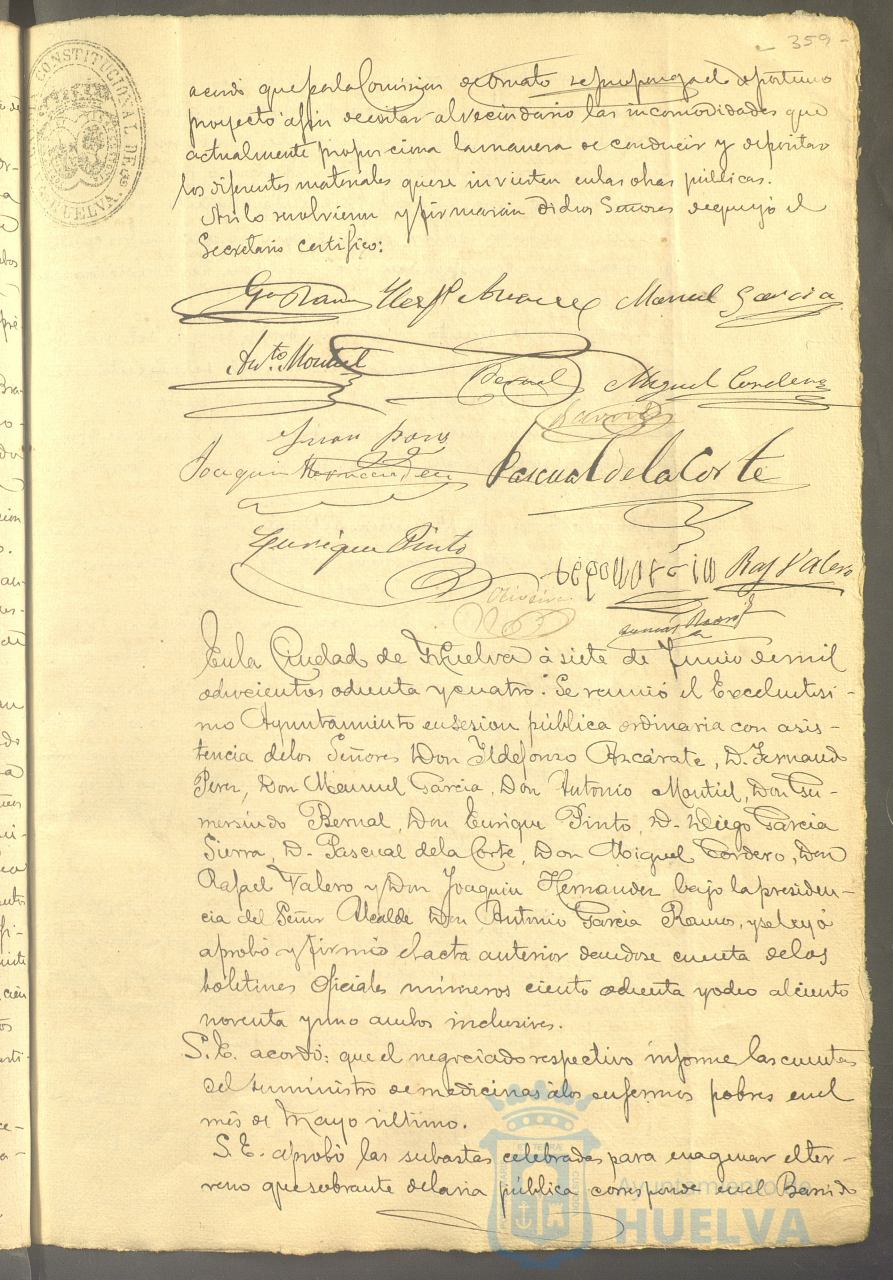 - 359 -
CONSTITUCIONAL DE
HUELVA.
acordó que por la Comision de Ornato se proponga el oportuno
proyecto afin de evitar al vecindario las incomodidades que
actualmente proporciona la manera de conducir y depositar
los diferentes materiales que se invierten en las obras públicas.
Asi lo resolvieron y firmarán dichos Señores de que yo el
Secretario certifico:
Ga Ramos
Azcárate Manuel Garcia
Anto. Montiel
Bernal Miguel Cordero
Juan
Joaquin Hernandez Pascual de la Corte
Enrique Pinto
Raf Valero
En la Ciudad de Huelva á siete de Junio de mil
ochocientos ochenta y cuatro: Se reunió el Excelentisi-
mo Ayuntamiento en sesion pública ordinaria con asis-
tencia de los Señores Don Ildefonso Azcárate, D. Fernando
Perez, Don Manuel Garcia, Don Antonio Montiel, Don Gu-
mersindo Bernal, Don Enrique Pinto, D. Diego Garcia
Sierra, D. Pascual de la Corte, Don Miguel Cordero, Don
Rafael Valero y Don Joaquin Hernandez bajo la presiden-
cia del Señor Alcalde Don Antonio Garcia Ramos, y se leyó
aprobó y firmó el acta anterior dandose cuenta de los
boletines oficiales números ciento ochenta y ocho al ciento
noventa y uno ambos inclusives.
S. E. acordó: que el negociado respectivo informe las cuentas
del suministro de medicinas á los enfermos pobres en el
més de Mayo último.
S. E. aprobó las subastas celebradas para enagenar el ter-
reno que sobrante de la via pública corresponde en el Barrio
Ayuntamiento de
HUELVA